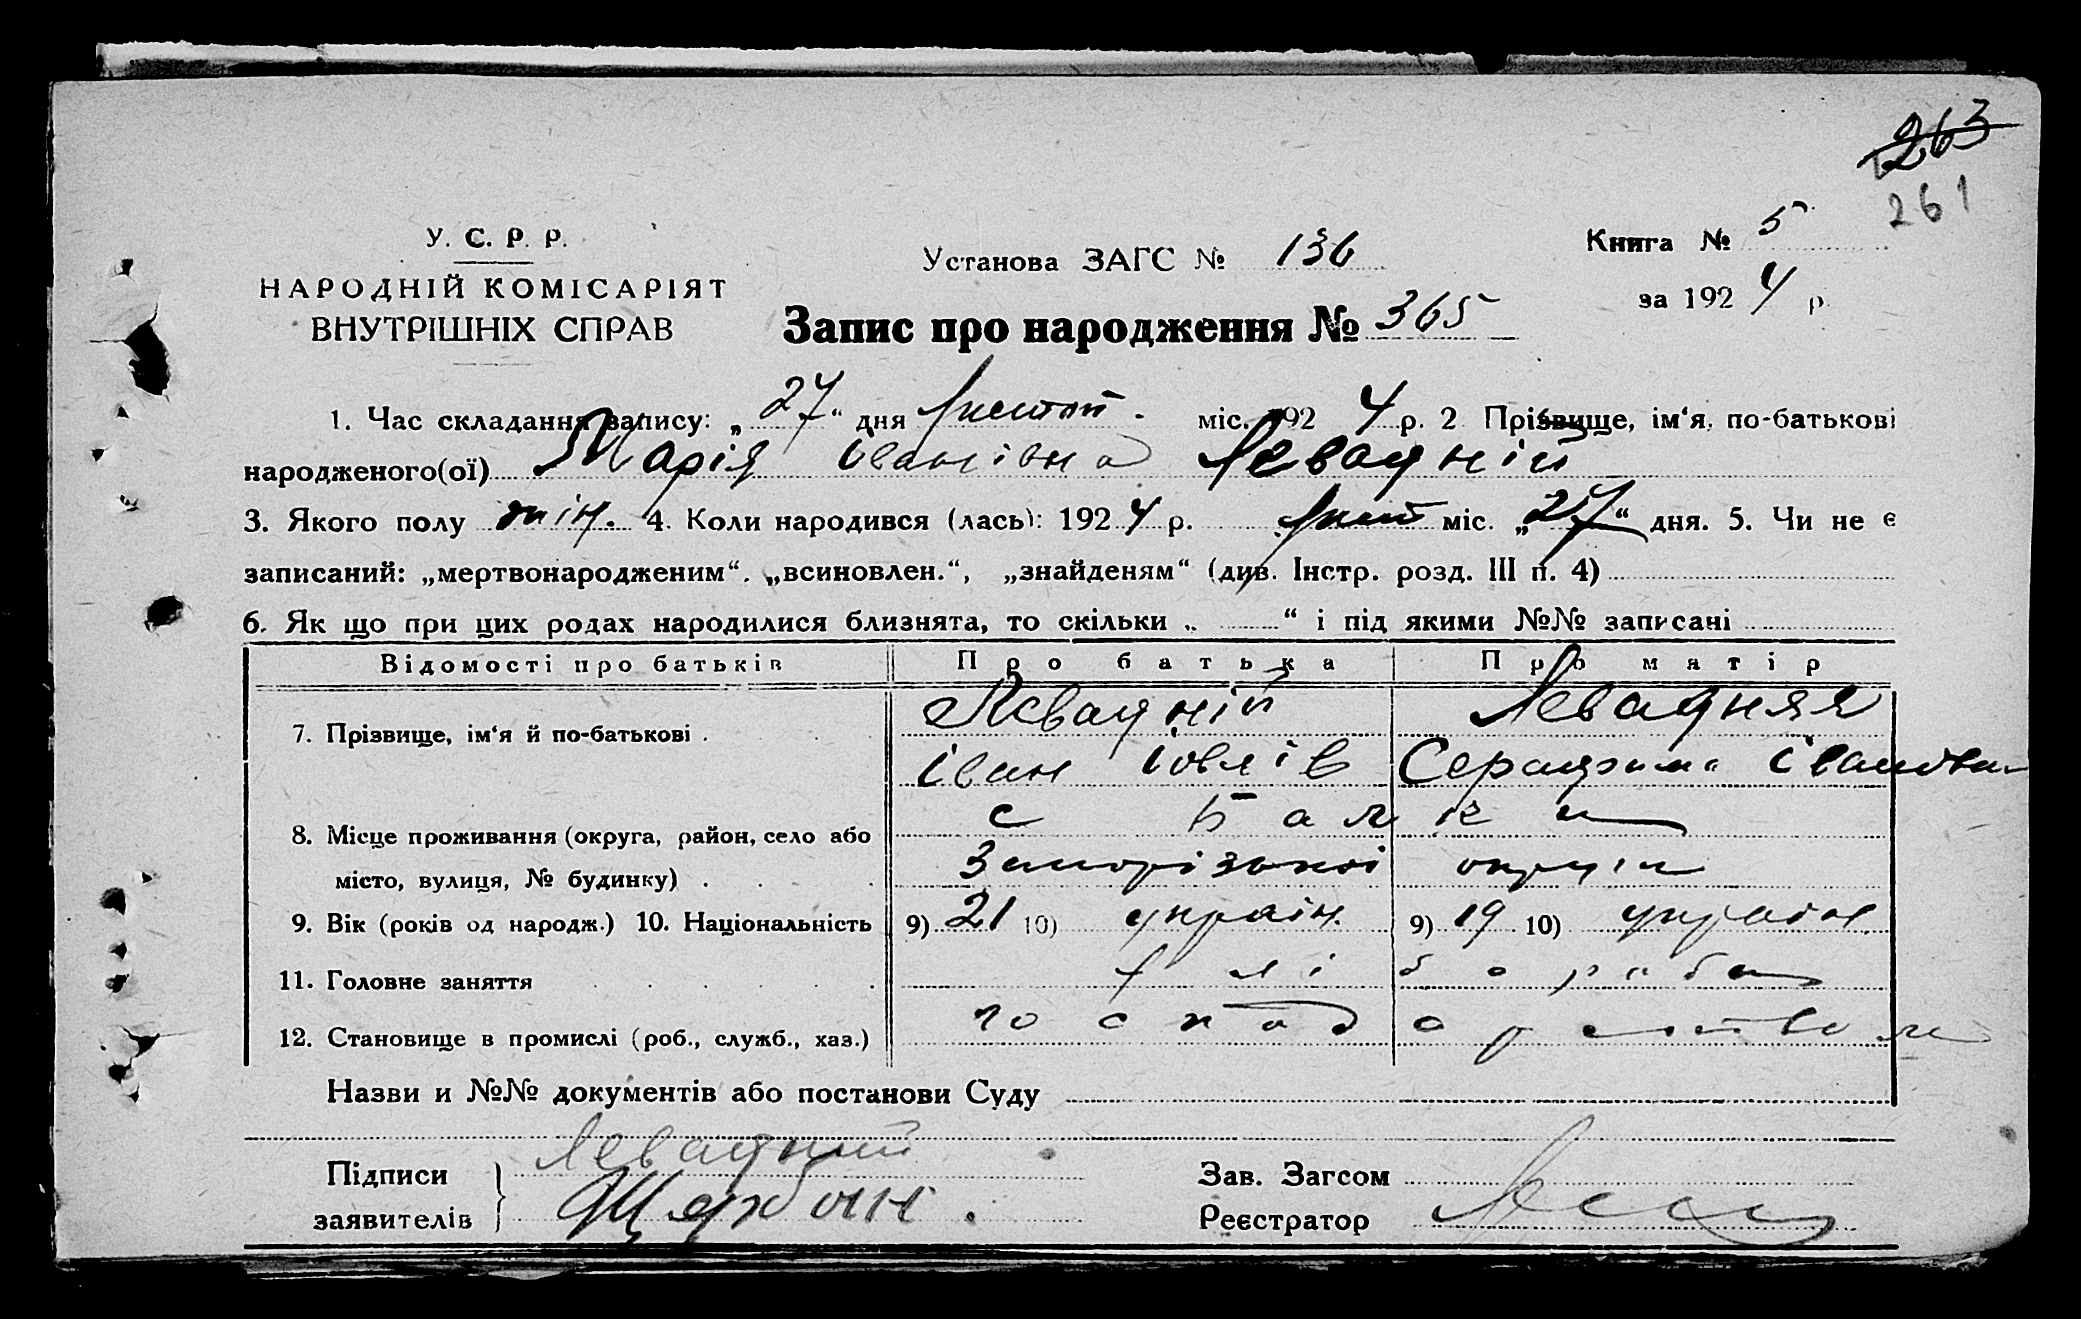 263
261
У. С. Р. Р.
НАРОДНІЙ КОМІСАРІЯТ
ВНУТРІШНІХ СПРАВ
Установа ЗАГС № 136
Книга № 5
за 1924 р.
Запис про народження № 365
1. Час складання запису: „27“ дня листоп. міс. 1924 р. 2 Прізвище, ім‘я, по-батькові
народженого(ої) Марія Іванівна Левадній
3. Якого полу жін. 4. Коли народився (лась): 1924 р. лист міс. „27“ дня. 5. Чи не є
записаний: „мертвонародженим“. „всиновлен.“, „знайденям“ (див. Інстр. розд. III п. 4)
6. Як що при цих родах народилися близнята, то скільки „ “ і під якими №№ записані
Відомості про батьків Про батька Про матір
7. Прізвище, ім‘я й по-батькові . Левадній Левадняя
Іван Іовлів Серафима Іванівна
8. Місце проживання (округа, район, село або с Балки
місто, вулиця, № будинку) . Запорізької округи
9. Вік (років од народж.) 10. Національність 9) 21 10) україн. 9) 19 10) україн.
11. Головне заняття хліборобы
12. Становище в промислі (роб., служб., хаз.) господарством
Назви и №№ документів або постанови Суду
Підписи Левадний Зав. Загсом
заявителів Щербак. Реєстратор